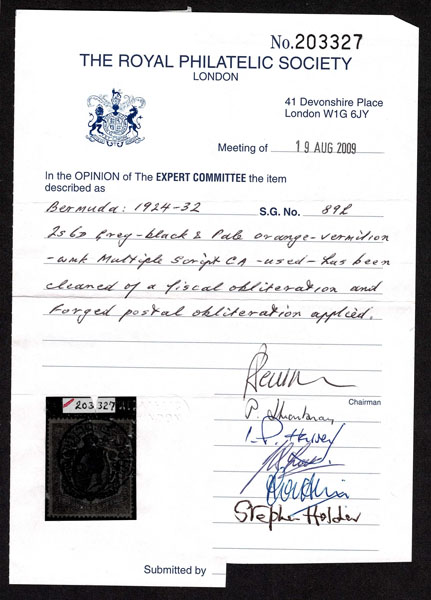 No.203327
THE ROYAL PHILATELIC SOCIETY
LONDON
41 Devonshire Place
London W1G 6JY
Meeting of 19 AUG 2009
In the OPINION of The EXPERT COMMITTEE the item
described as
Bermuda: 1924-32 S.G. No. 89h
2s6d Grey-black & Pale orange-vermilion
-wmk Multiple Script CA -used- has been
cleaned of a fiscal obliteration and
Forged postal obliteration applied.
Chairman
203 327
Stephen Holder
Submitted by